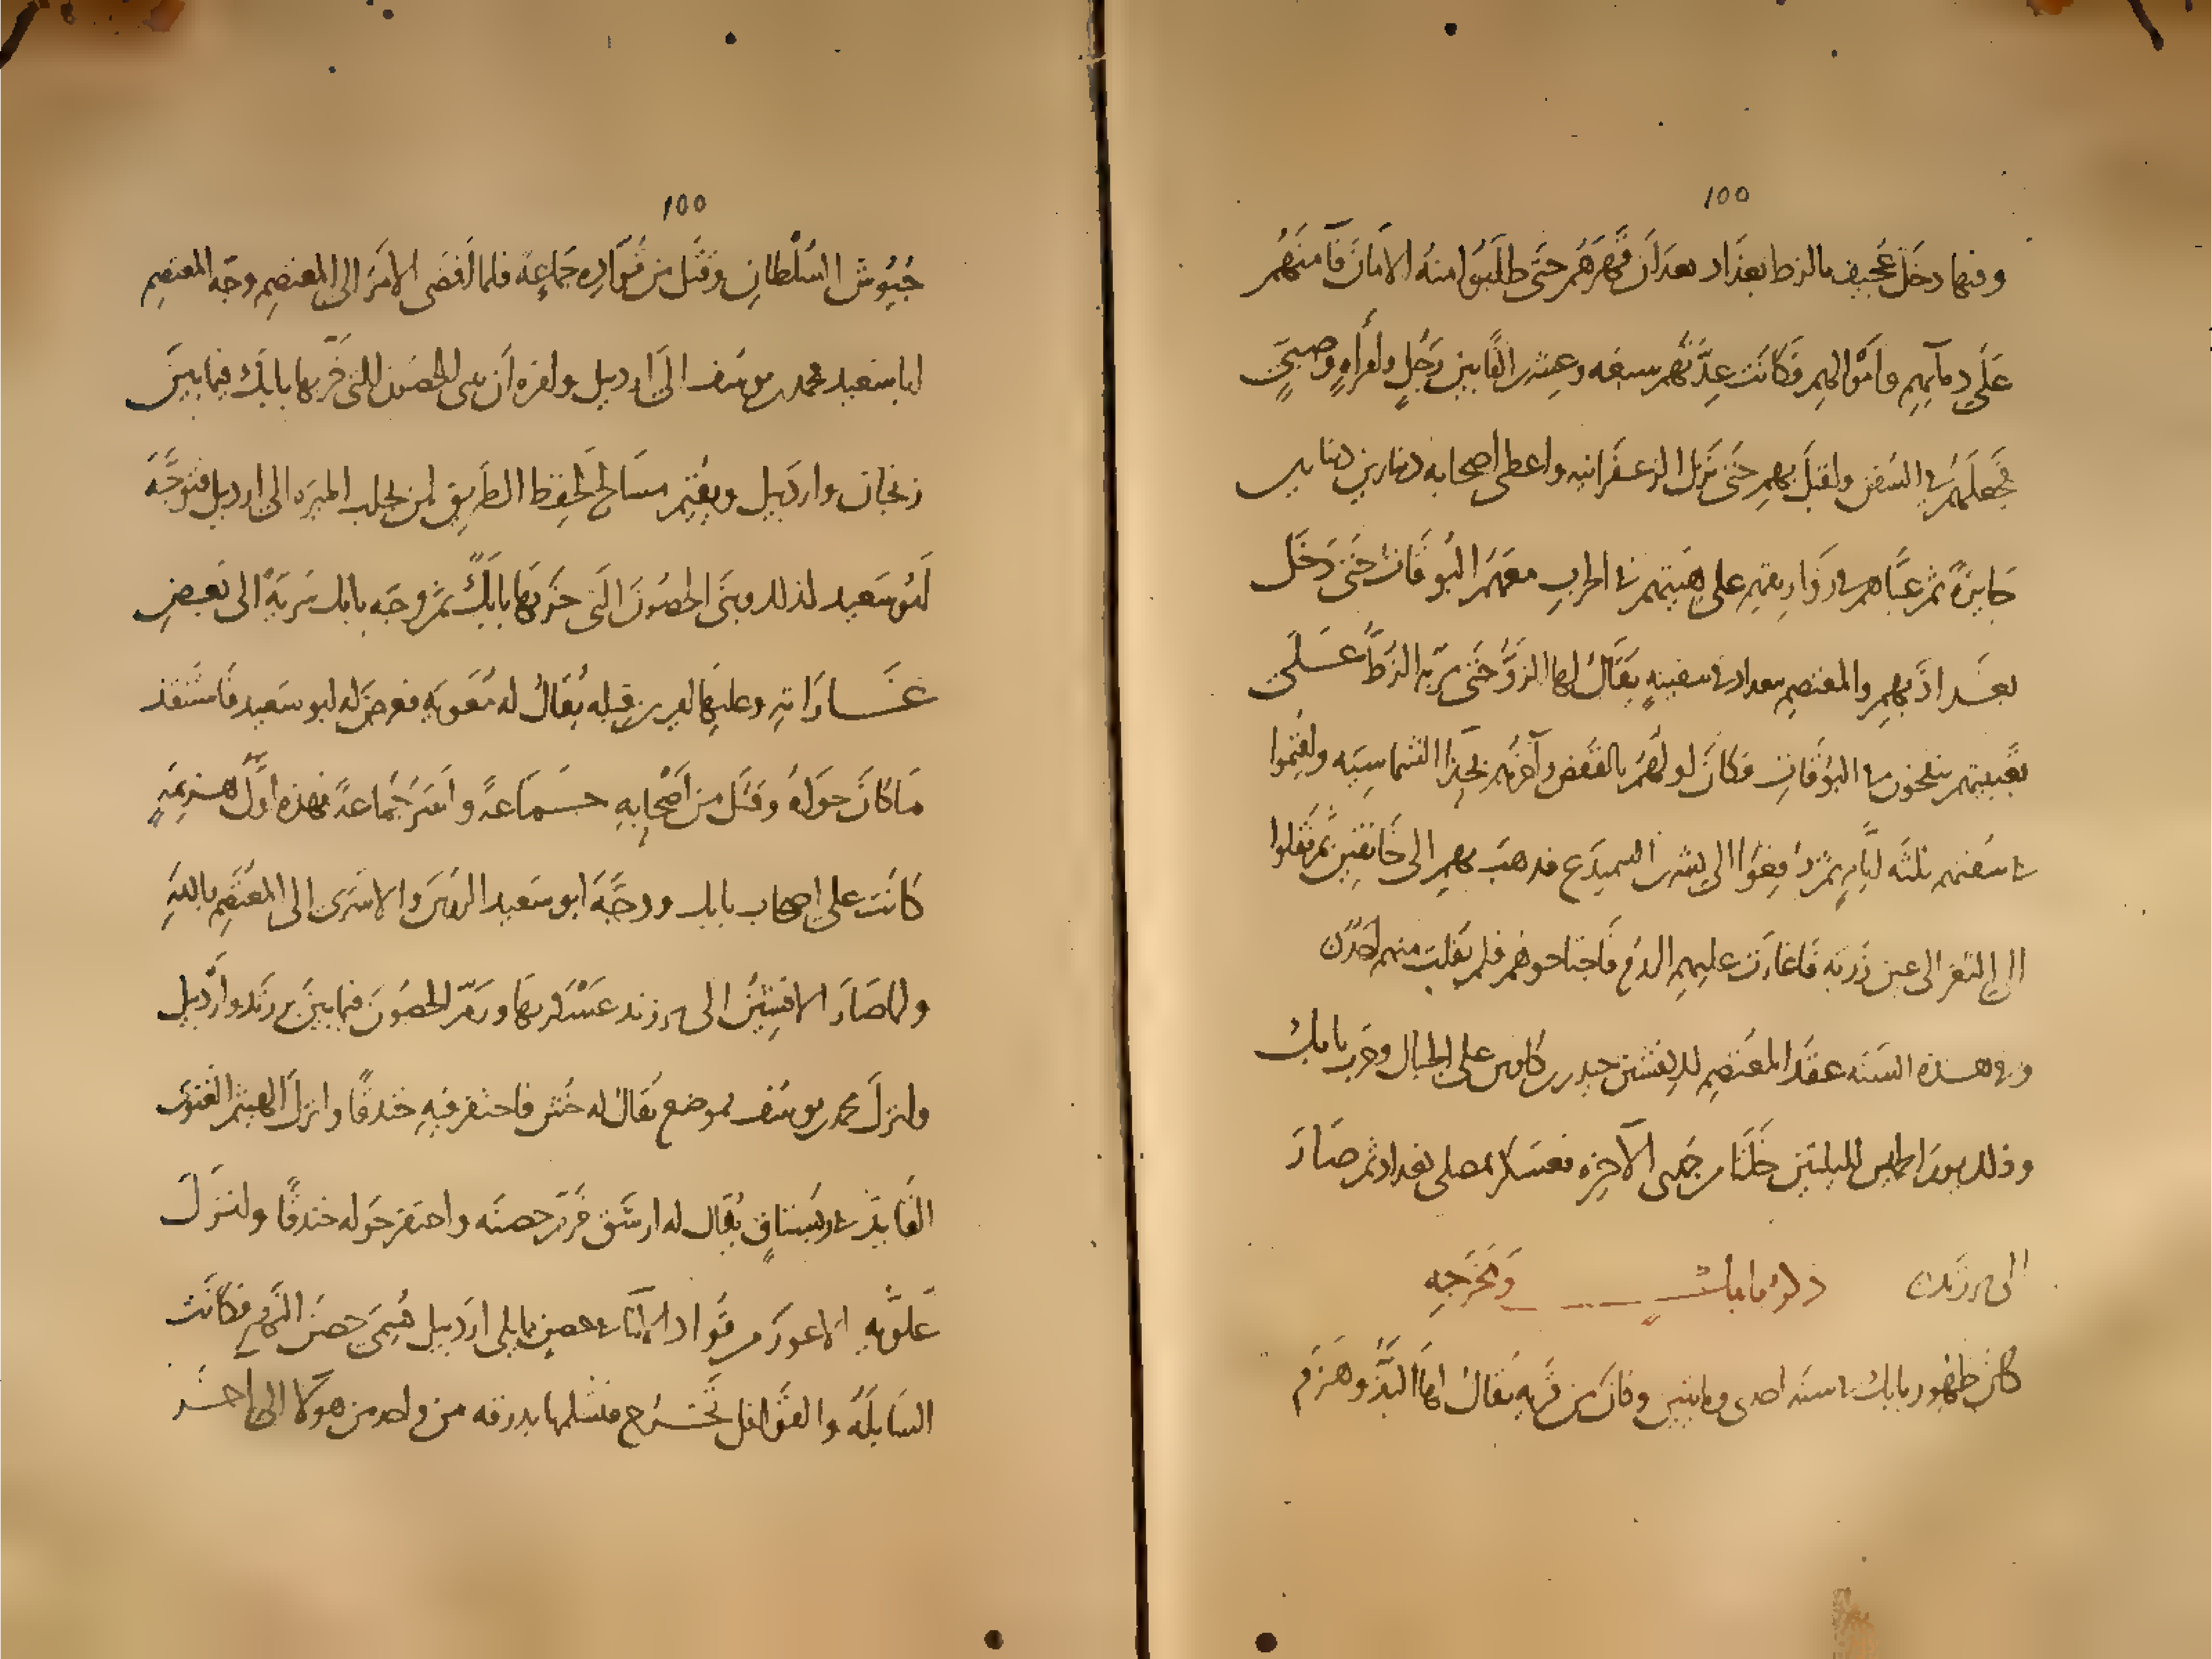 ١٥٥
وفيها دخل عجيف بالزط بغداد بعد أن قهرهم حتى طلبوا منه الامان فآمنهم
على دمآيهم وأموالهم فكانت عدتهم سبعه وعشرين الفا بين رجل وامرأه وصبي
فجعلهم في السفن واقبل بهم حتى نزل الزعفرانيه واعطى أصحابه دينارين دينارين
جايزة ثم عباهم في زواريقهم على هيئتهم في الحرب معهم البوقات حتى دخل
بغداذ بهم والمعتصم ببغداد في سفينه يقال لها الزو حتى مر به الزط على
تعبيتهم ينفخون في البوقات فكان اولهم بالقفص وآخرهم بحذا الشماسيه واقيموا
في سفنهم ثلثه ايام ثم دفعوا الى بشر بن السميدع فذهب بهم الى خانقين ثم نقلوا
الى الثغر الى عين زربه فاغارت عليهم الروم فاجتاحوهم فلم يفلت منهم احد
وفي هذه السنه عقد المعتصم للافشين حيدر بن كاوس على الجبال وحرب بابك
وذلك يوم الخميس لليلتين خلتا من جمدى الآخره فعسكر بمصلى بغداد ثم صار
الى برزند ذكر بابك ومخرجه
كان ظهور بابك في سنه احدى ومايتين وكان من قريه يقال لها البذ وهزم
١٥٥
جيوش السلطان وقتل من قواده جماعة فلما افضى الامر الى المعتصم وجه المعتصم
ابا سعيد محمد بن يوسف الى اردبيل وامره أن يبنى الحصون التى خربها بابك فيما بين
زنجان واردبيل ويقيم مسالح لحفظ الطريق لمن يجلب الميره الى اردبيل فتوجه
ابو سعيد لذلك وبنى الحصون التى خربها بابك ثم وجه بابك سرية الى بعض
غاراته وعليها امير من قبله يقال له معويه فعرض له ابو سعيد فاستنقذ
ما كان حواه وقتل من أصحابه جماعة وأسر جماعة فهذه اول هزيمه
كانت على اصحاب بابك ووجه ابو سعيد الروس والاسرى الى المعتصم بالله
ولما صار الافشين الى برزند عسكر بها ورم الحصون فيما بين برزند واردبيل
وانزل محمد بن يوسف بموضع يقال له خش فاحتفر فيه خندقا وانزل الهيثم الغنوى
القايد في رستاق يقال له ارشق فرم حصنه واحتفر حوله خندقا وانزل
علويه الاعور من قواد الابنا في حصن مما يلى اردبيل فسمى حصن النهر فكانت
السابله والقوافل تخرج فتسلمها بدرقه من واحد من هولا الى الاخر